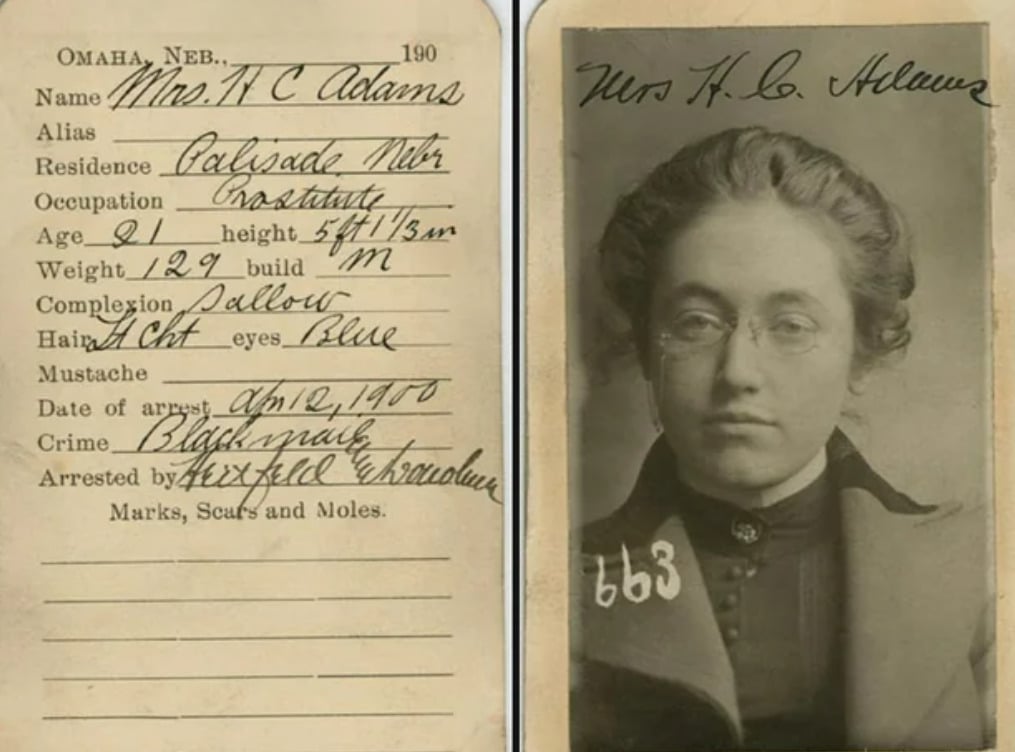 OMAHA, NEB., 190
Name Mrs. H C Adams
Alias
Residence Palisade, Nebr
Occupation Prostitute
Age 21 height 5 ft 1 1/3 in
Weight 129 build M
Complexion Sallow
Hair Lt Cht eyes Blue
Mustache
Date of arrest Apr 12, 1900
Crime Blackmail
Arrested by
Marks, Scars and Moles.
Mrs H. C. Adams
663